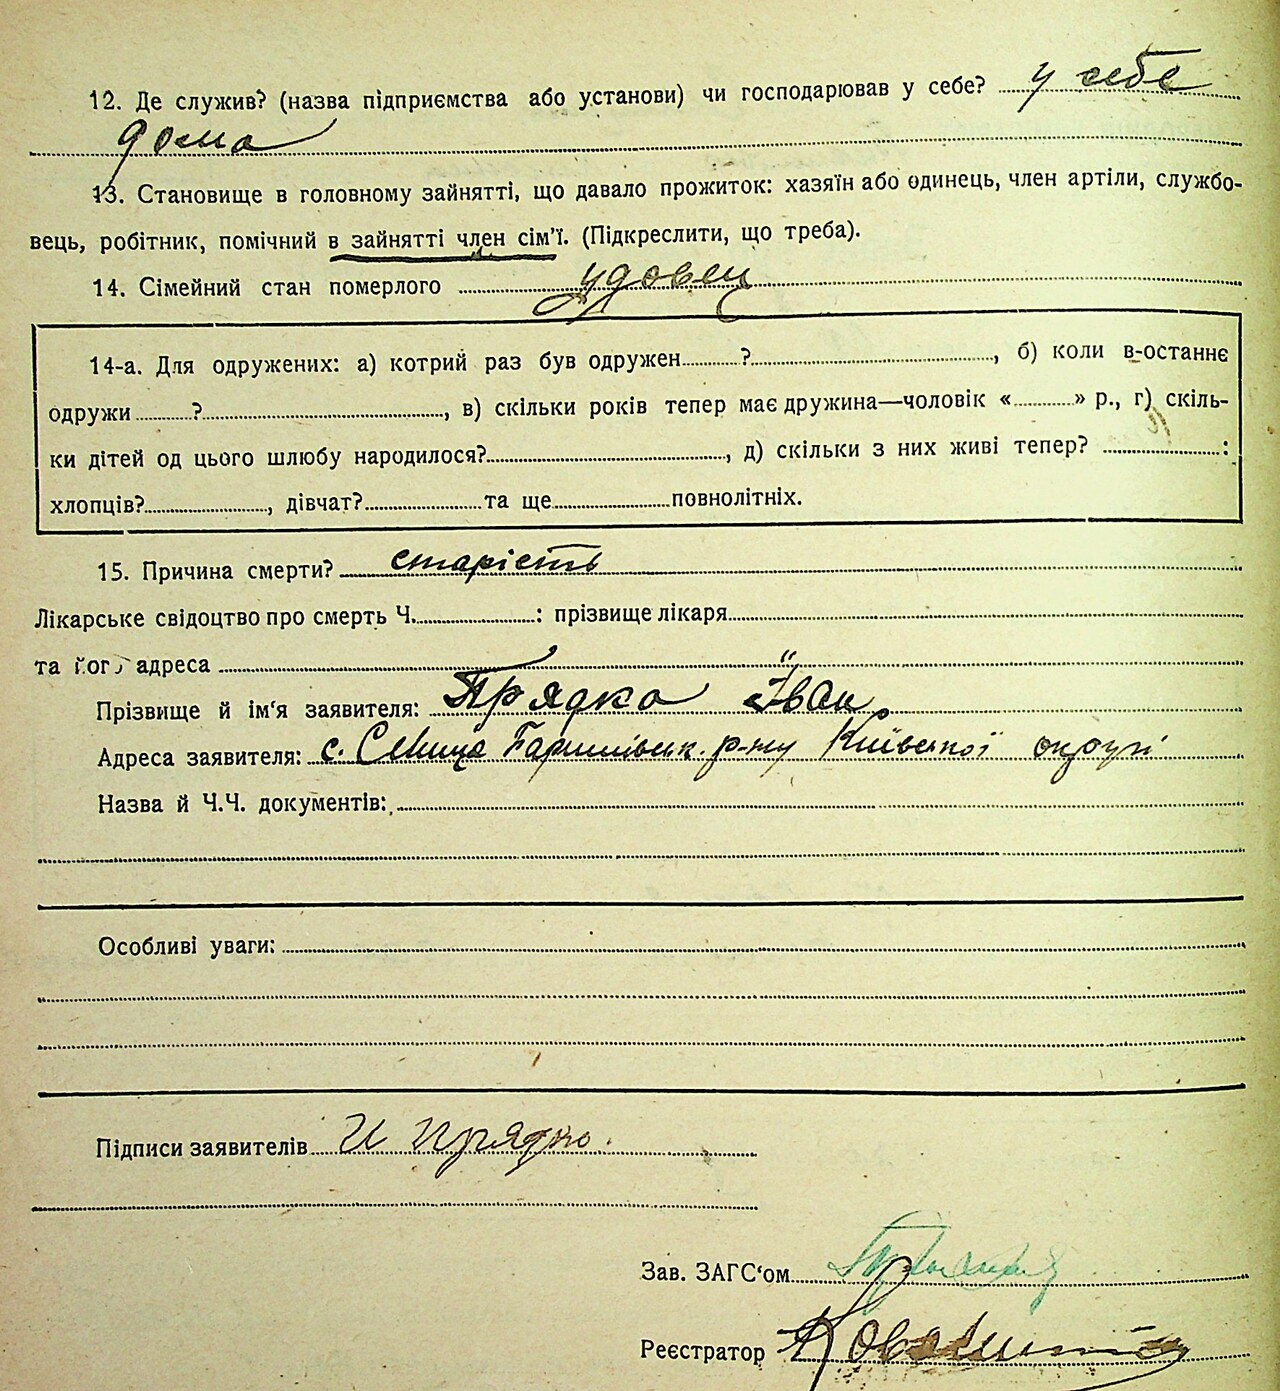 12. Де служив? (назва підприємства або установи) чи господарював у себе? у себе
дома
13. Становище в головному зайнятті, що давало прожиток: хазяїн або одинець, член артіли, службо-
вець, робітник, помічний в зайнятті член сім'ї. (Підкреслити, що треба).
14. Сімейний стан померлого удовец
14-а. Для одружених: а) котрий раз був одружен........?........, б) коли в-останнє
одружи........?........, в) скільки років тепер має дружина—чоловік «........» р., г) скіль-
ки дітей од цього шлюбу народилося?........, д) скільки з них живі тепер? ........:
хлопців?........, дівчат?........ та ще........повнолітніх.
15. Причина смерти? старість
Лікарське свідоцтво про смерть Ч.........: прізвище лікаря........
та його адреса ........
Прізвище й ім'я заявителя: Прядко Іван
Адреса заявителя: с. Селище Баришівськ. р-ну Київської округі
Назва й Ч.Ч. документів:
Особливі уваги:
Підписи заявителів И Прядко.
Зав. ЗАГС'ом
Реєстратор